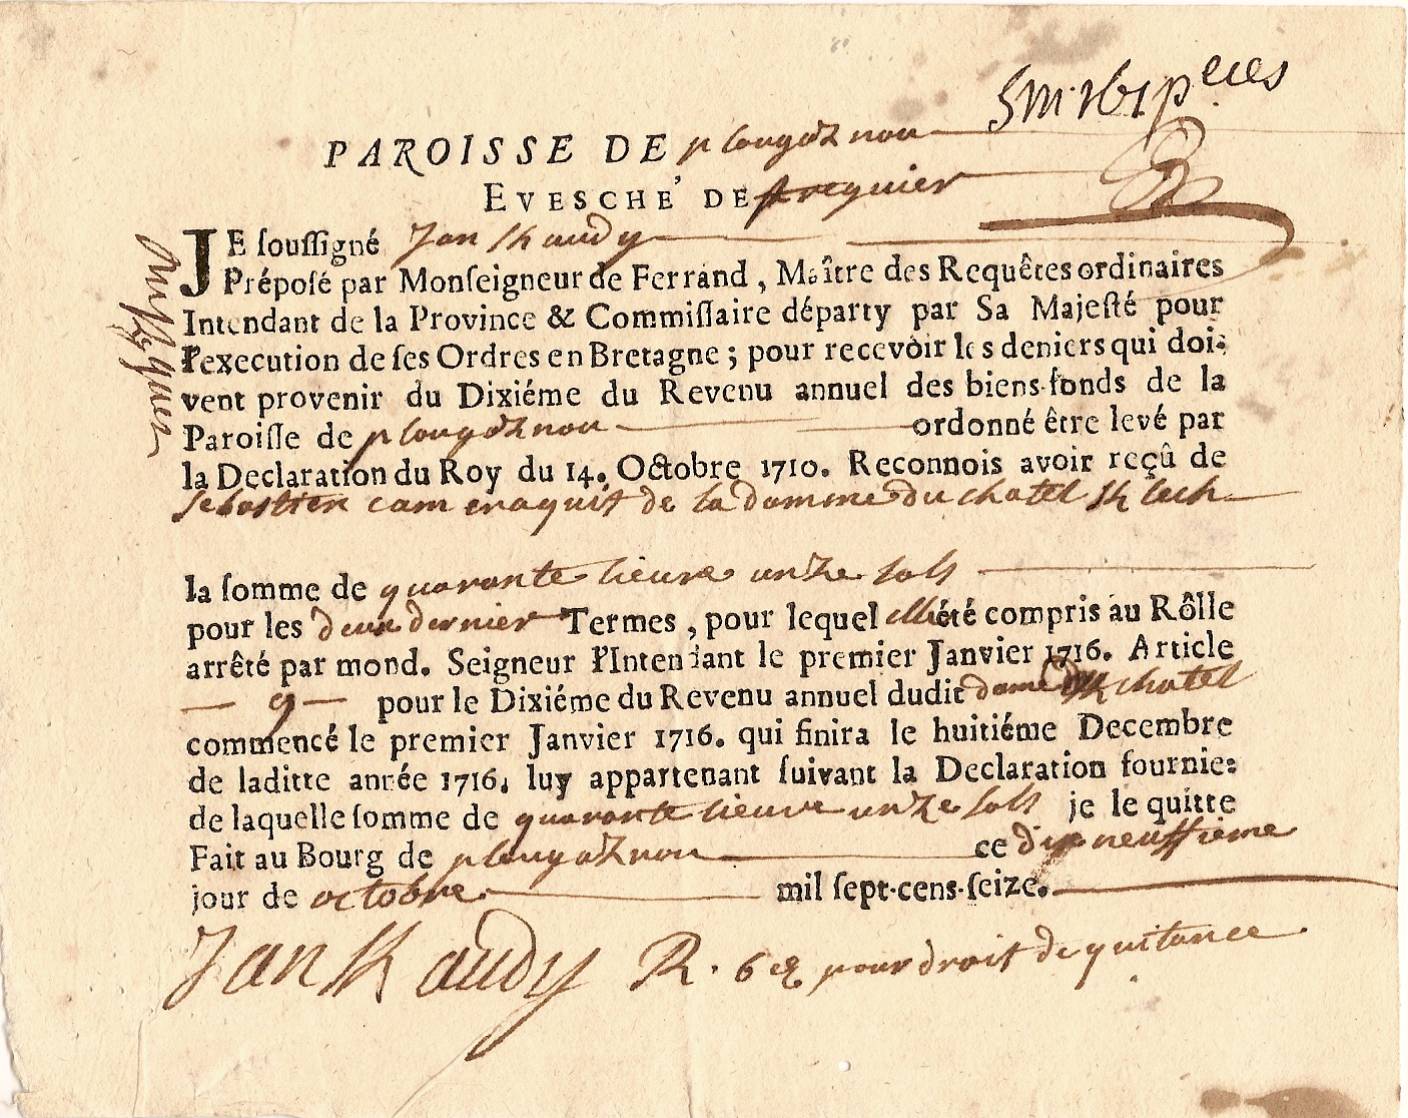 PAROISSE DE plougaznou
EVESCHÉ DE treguier
JE soussigné Jan Kaudy
Préposé par Monseigneur de Ferrand, Maître des Requêtes ordinaires
Intendant de la Province & Commissaire départy par Sa Majesté pour
l'execution de ses Ordres en Bretagne; pour recevoir les deniers qui doi-
vent provenir du Dixiéme du Revenu annuel des biens-fonds de la
Paroisse de plougaznou ordonné être levé par
la Declaration du Roy du 14. Octobre 1710. Reconnois avoir reçû de
sebastien cam en aquit de la damme du chatel
la somme de quarante lieure unze sols
pour les deux dernier Termes, pour lequel elle été compris au Rôlle
arrêté par mond. Seigneur l'Intendant le premier Janvier 1716. Article
9 pour le Dixiéme du Revenu annuel dudit dame chatel
commencé le premier Janvier 1716. qui finira le huitiéme Decembre
de laditte année 1716, luy appartenant suivant la Declaration fournie:
de laquelle somme de quarante lieure unze sols je le quitte
Fait au Bourg de plougaznou ce dix neuffieme
jour de octobre mil sept-cens-seize.
Jan Kaudy R. 6 pour droit de quitance